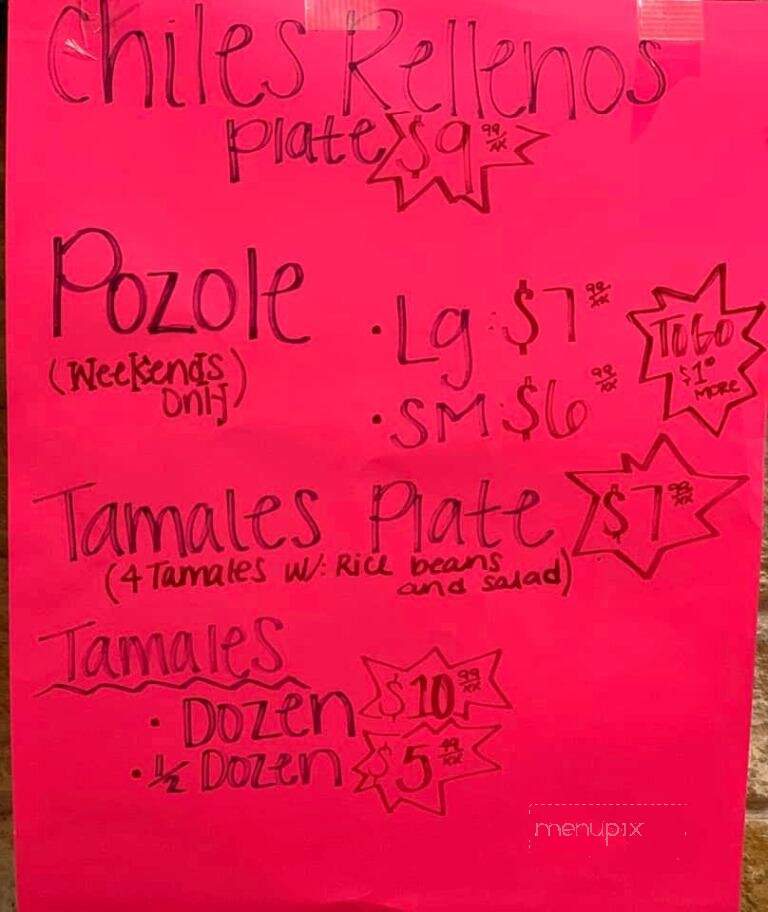 Chiles Rellenos
Plate $9 99/xx
Pozole
(Weekends only)
• Lg: $7 99/xx
• SM $6 99/xx
TO GO $1⁰⁰ MORE
Tamales Plate $7 99/xx
(4 Tamales w/: Rice beans
and salad)
Tamales
• Dozen $10 99/xx
• 1/2 Dozen $5 99/xx
menupix